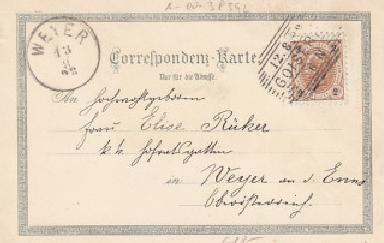 WEYER
13
Correspondenz-Karte
Nur für die Adresse.
12.8
GOISERN
An Hochwohlgeboren
Frau Elise Rüker
k.k. Hofratsgattin
in Weyer a. d. Enns
Oberösterreich